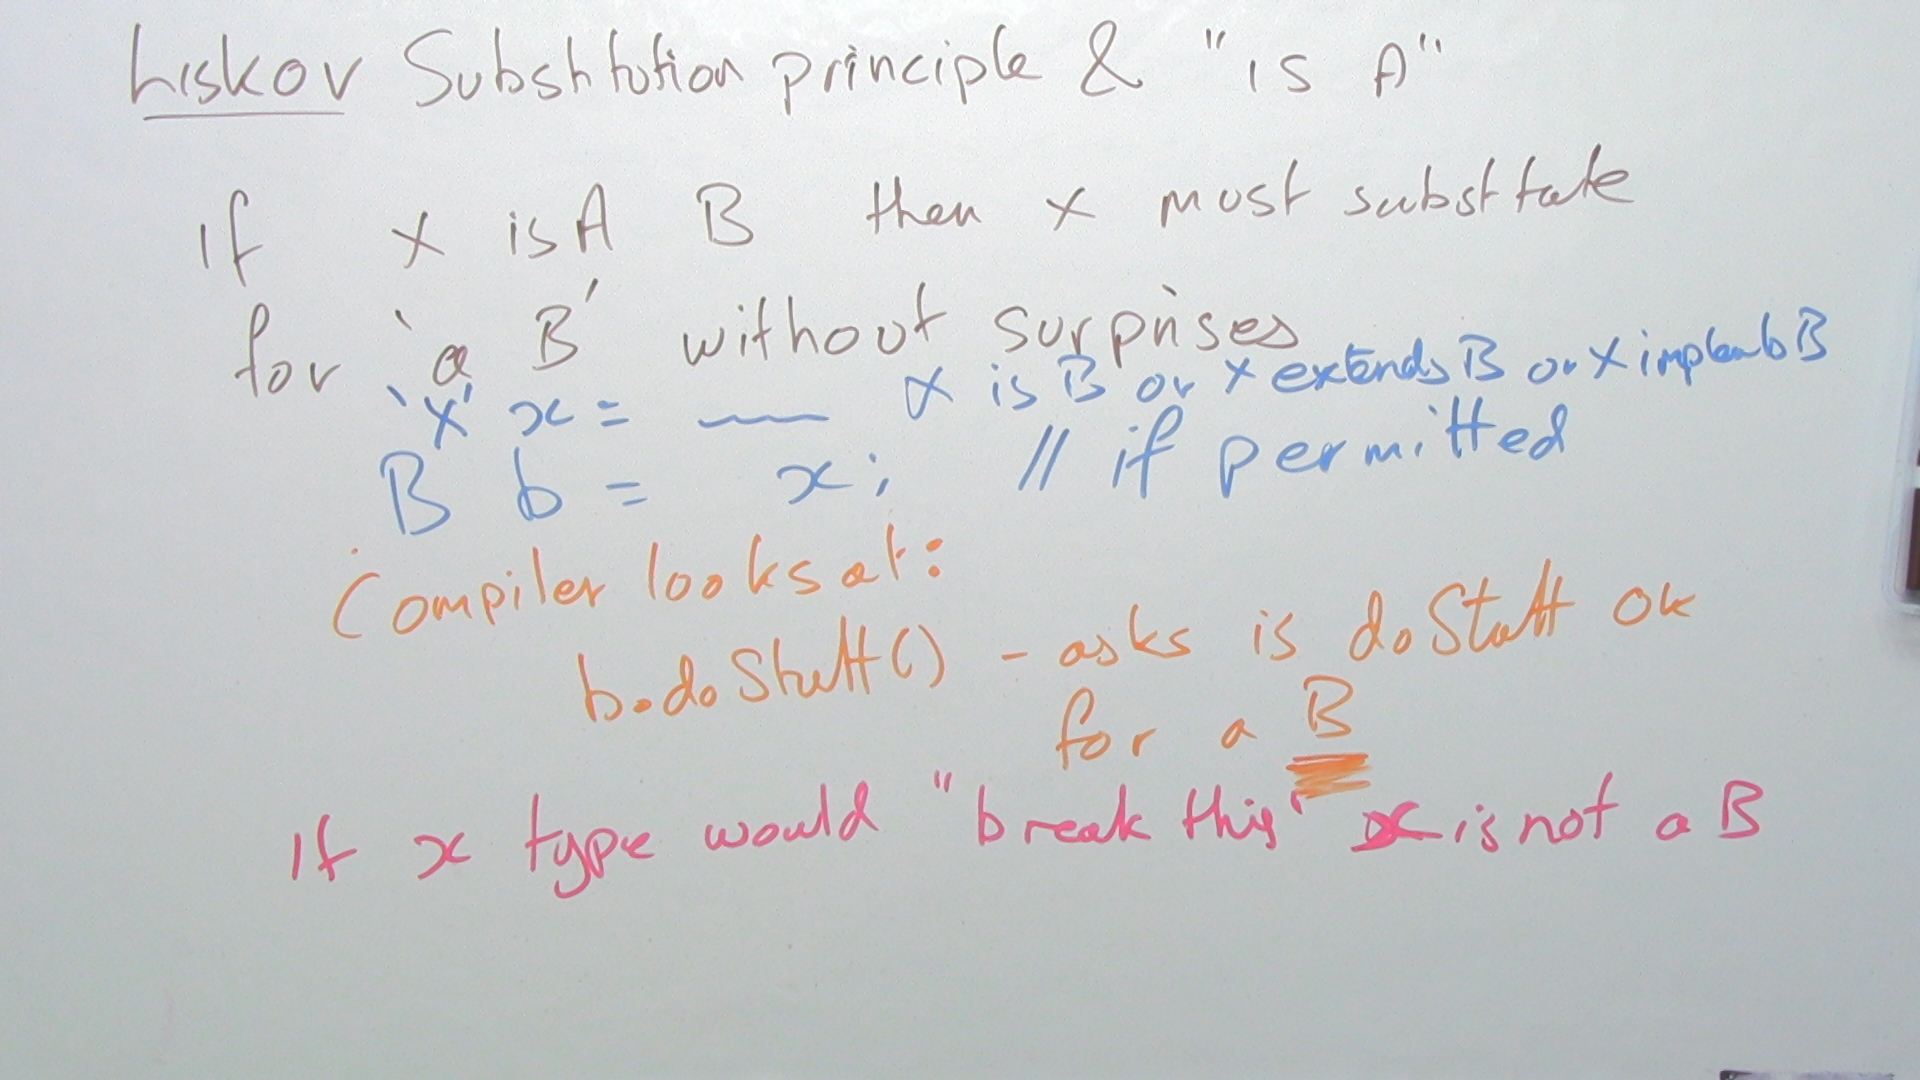 Liskov Substitution principle & "is A"
if X isA B then X must substitute
for 'a B' without surprises
X is B or X extends B or X implements B
'X' x =
B b = x; // if permitted
Compiler looks at:
b.doStuff() - asks is doStuff ok
for a B
If x type would "break this" x is not a B